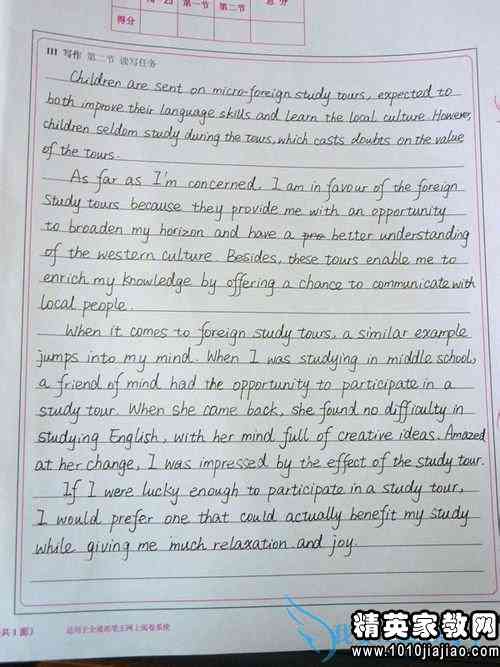 第一节 第二节 总分
得分
III 写作 第二节 读写任务
Children are sent on micro-foreign study tours, expected to
both improve their language skills and learn the local culture. However,
children seldom study during the tours, which casts doubts on the value
of the tours.
As far as I'm concerned, I am in favour of the foreign
study tours because they provide me with an opportunity
to broaden my horizon and have a better understanding
of the western culture. Besides, these tours enable me to
enrich my knowledge by offering a chance to communicate with
local people.
When it comes to foreign study tours, a similar example
jumps into my mind. When I was studying in middle school,
a friend of mind had the opportunity to participate in a
study tour. When she came back, she found no difficulty in
studying English, with her mind full of creative ideas. Amazed
at her change, I was impressed by the effect of the study tour.
If I were lucky enough to participate in a study tour,
I would prefer one that could actually benefit my study
while giving me much relaxation and joy.
共1面)
精英家教网
www.1010jiajiao.com